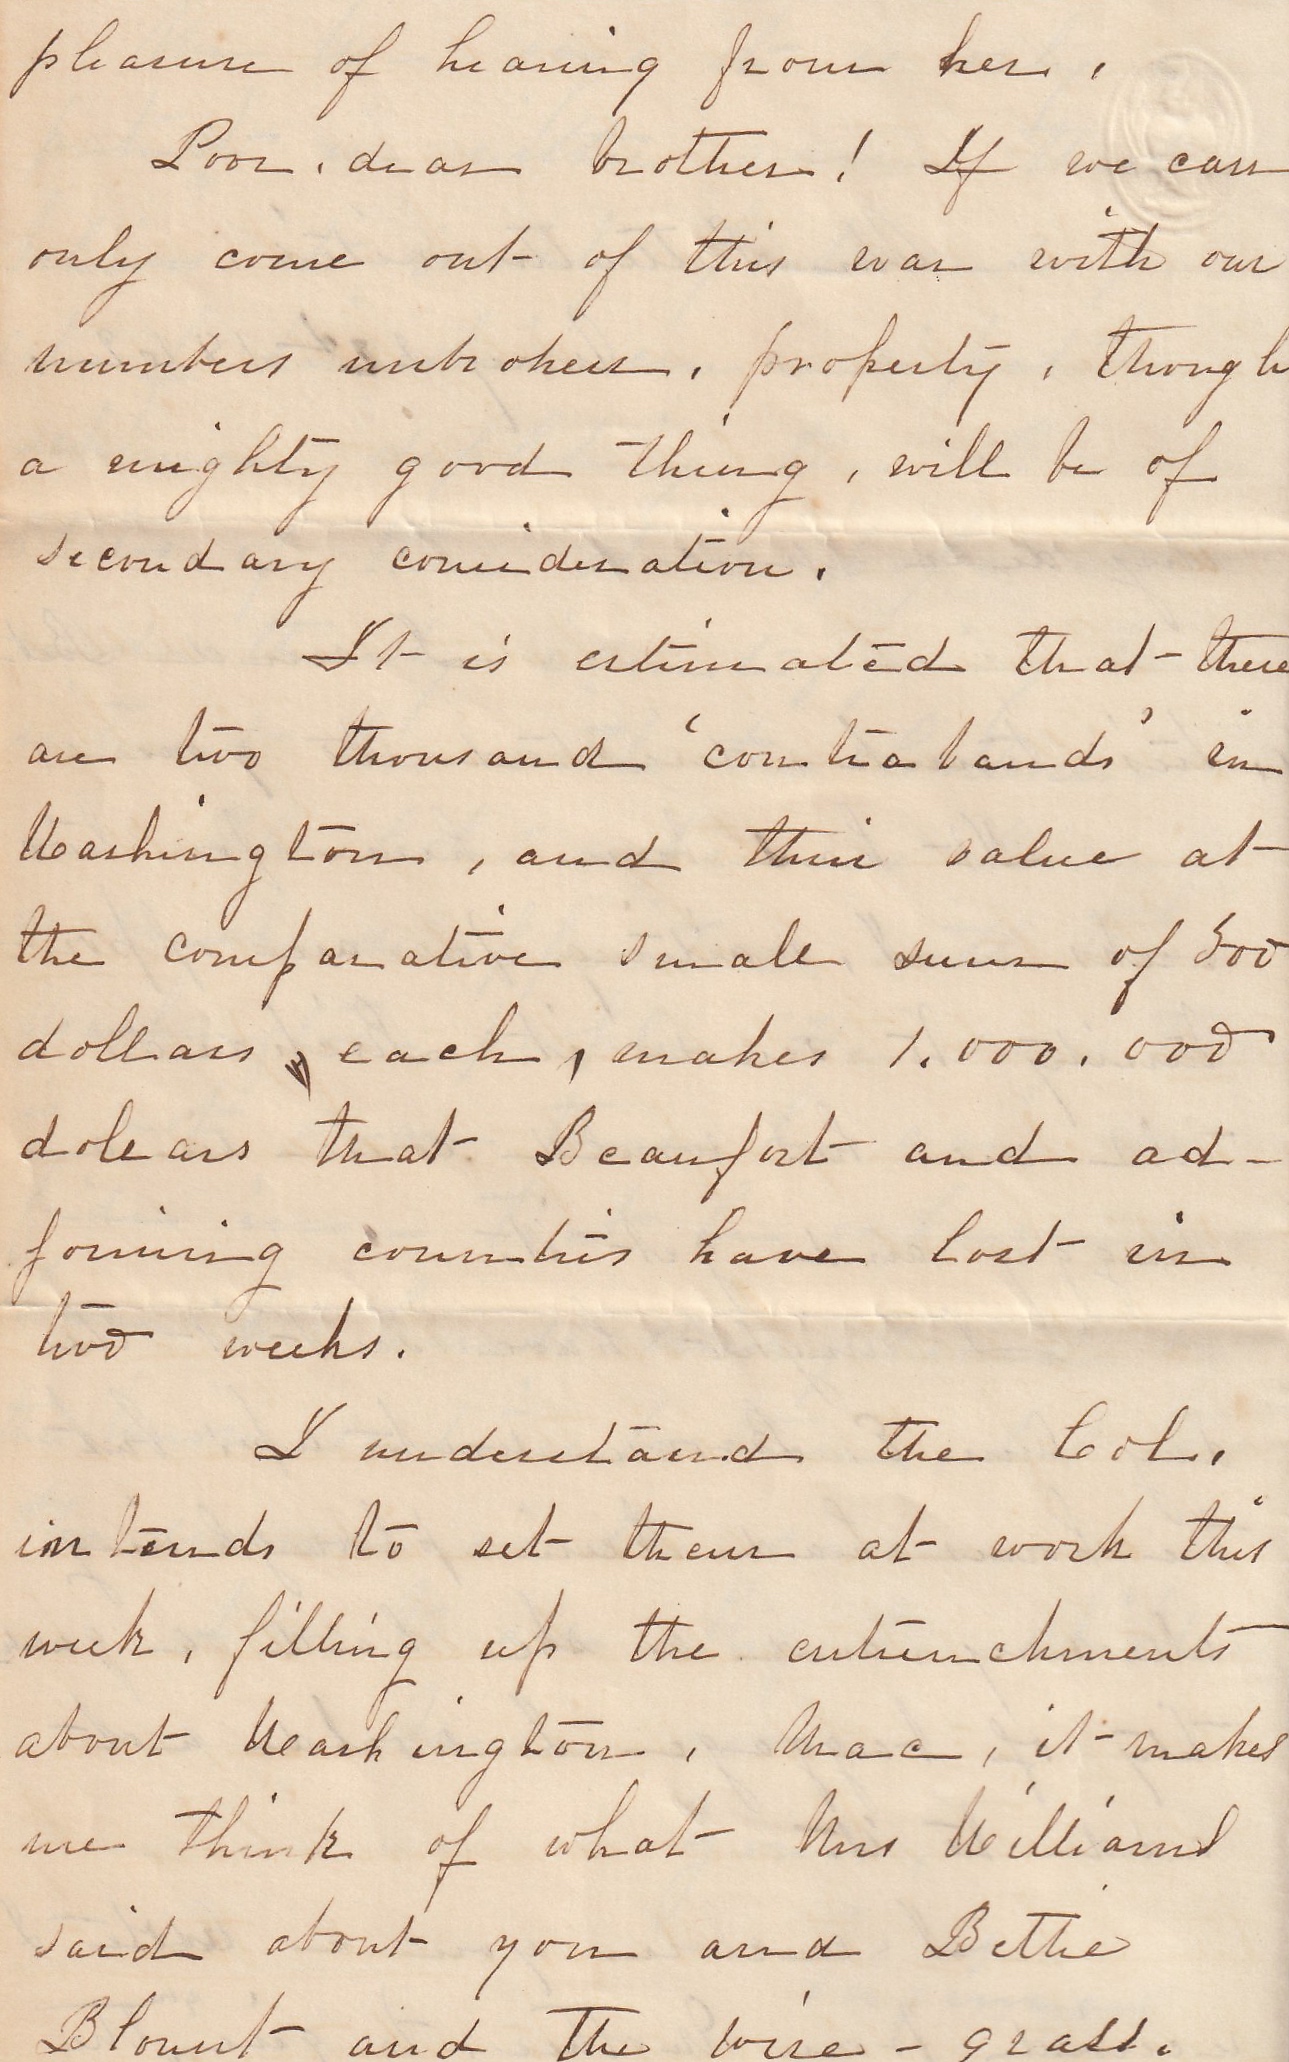 pleasure of hearing from her.
Poor, dear brother! If we can
only come out of this war with our
numbers unbroken, property, though
a mighty good thing, will be of
secondary consideration.
It is estimated that there
are two thousand 'contrabands' in
Washington, and their value at
the comparative small sum of 500
dollars, each, makes 1.000.000
dollars that Beaufort and ad-
joining counties have lost in
two weeks.
I understand the Col.
intends to set them at work this
week, filling up the entrenchments
about Washington. Mac, it makes
me think of what Mrs Williams
said about you and Bettie
Blount and the wire-grass.